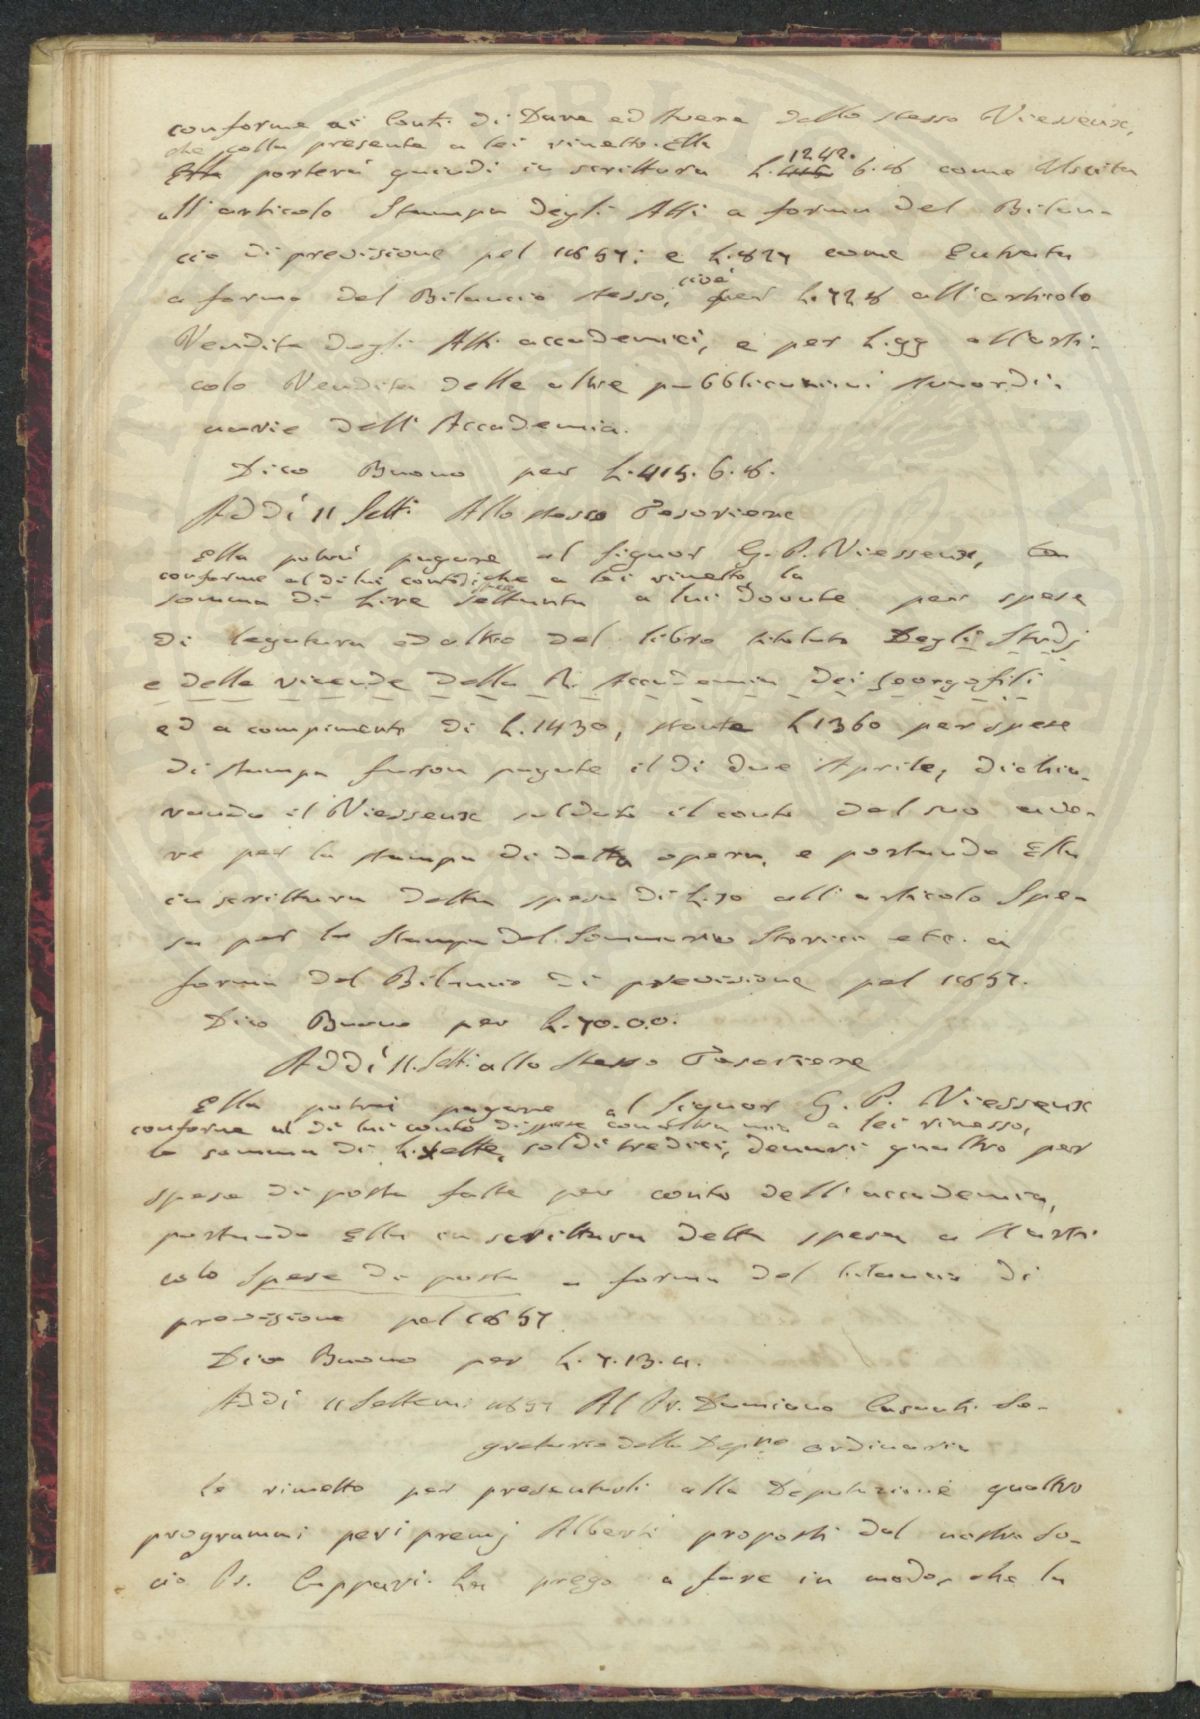 conforme ai Conti di Dare ed Avere dello stesso Viesseux,
che colla presente a lei rimetto. Ella
Ella porterà quindi in scrittura L. 1242. 6. 8 come Uscita
all'articolo Stampa degli Atti a forma del Bilan-
cio di previsione pel 1857: e L. 827 come Entrata
a forma del Bilancio stesso, cioè per L. 728 all'articolo
Vendita degli Atti accademici, e per L. 99 all'arti-
colo Vendita delle altre pubblicazioni straordi-
narie dell'Accademia.
Dico Buono per L. 415. 6. 8.
Addì 11 Sett. Allo stesso Tesoriere
Ella potrà pagare al Signor G. P. Viesseux, la
conforme al di lui conto di spese che a lei rimetto, la
somma di Lire settanta a lui dovute per spese
di legatura ed altro del libro titolato Degli Studj
e delle vicende della R. Accademia dei Georgofili
ed a compimento di L. 1430, stante L 1360 per spese
di stampa furon pagate il dì due Aprile, dichia-
rando il Viesseux saldato il conto del suo ave-
re per la stampa di detta opera, e portando Ella
in scrittura detta spesa di L. 70 all'articolo Spe-
sa per la Stampa del Sommario Storico etc. a
forma del Bilancio di previsione pel 1857.
Dico Buono per L. 70. 0. 0.
Addì 11. Sett. allo stesso Tesoriere
Ella potrà pagare al Signor G. P. Viesseux
conforme al di lui conto di spese a lei rimesso,
la somma di L. sette, soldi tredici, denari quattro per
spese di posta fatte per conto dell'accademia,
portando Ella in scrittura detta spesa a ll'arti-
colo Spese di posta a forma del bilancio di
previsione pel 1857
Dico Buono per L. 7. 13. 4.
Addì 11 Settem. 1857 Al Pr. Damiano Casanti Se-
gretario della Depne ordinaria
Le rimetto per presentarli alla Deputazione quattro
programmi per i premj Alberti proposti dal nostro So-
cio Pr. Capparri. La prego a fare in modo, che la